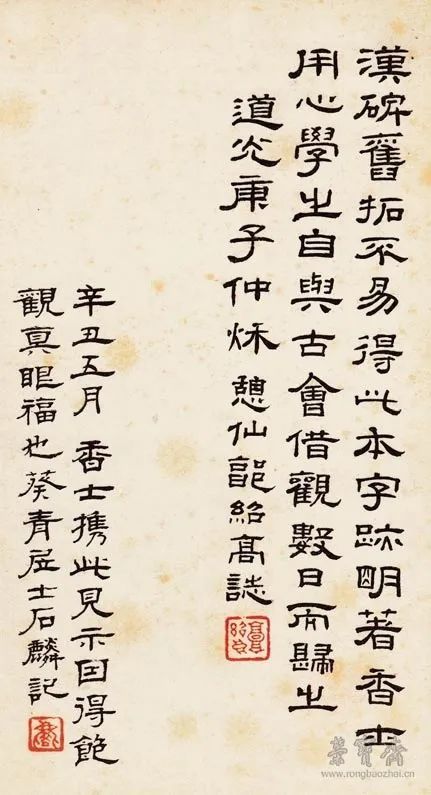 漢碑舊拓不易得此本字跡明著香士
用心學之自與古會借觀數日而歸之
道光庚子仲秌憩仙郭紹高誌
辛丑五月香士攜此見示因得飽
觀真眼福也葵青居士石麟記
榮寶齋
www.rongbaozhai.cn